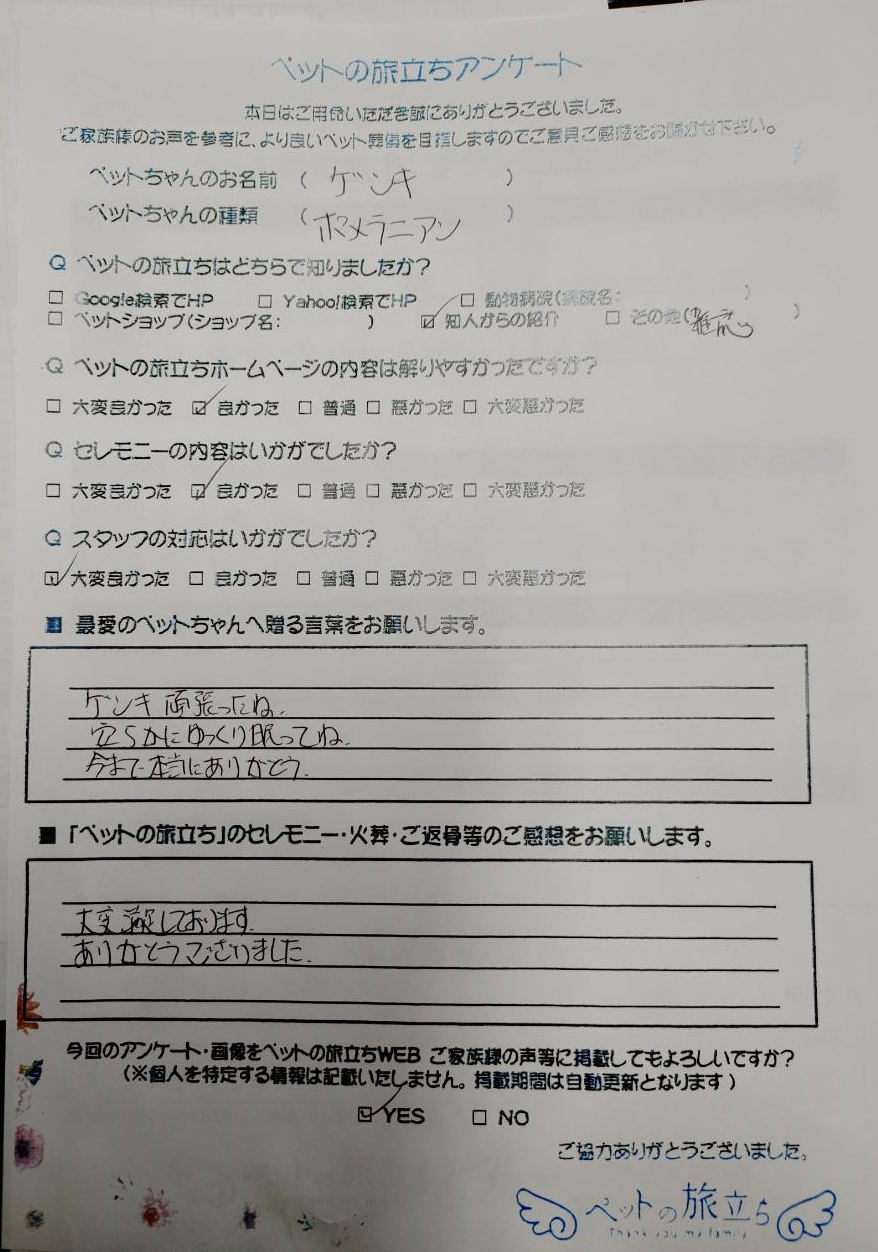 ペットの旅立ちアンケート
本日はご用命いただき誠にありがとうございました。
ご家族様のお声を参考に、より良いペット葬儀を目指しますのでご意見ご感想をお聞かせ下さい。
ペットちゃんのお名前 ( ゲンキ )
ペットちゃんの種類 ( ポメラニアン )
Q ペットの旅立ちはどちらで知りましたか?
□ Google検索でHP □ Yahoo!検索でHP □ 動物病院(病院名: )
□ ペットショップ(ショップ名: ) ☑ 知人からの紹介 □ その他( )
Q ペットの旅立ちホームページの内容は解りやすかったですか?
□ 大変良かった ☑ 良かった □ 普通 □ 悪かった □ 大変悪かった
Q セレモニーの内容はいかがでしたか?
□ 大変良かった ☑ 良かった □ 普通 □ 悪かった □ 大変悪かった
Q スタッフの対応はいかがでしたか?
☑ 大変良かった □ 良かった □ 普通 □ 悪かった □ 大変悪かった
■ 最愛のペットちゃんへ贈る言葉をお願いします。
ゲンキ 頑張ったね.
安らかにゆっくり眠ってね.
今まで本当にありがとう.
■ 「ペットの旅立ち」のセレモニー・火葬・ご返骨等のご感想をお願いします。
大変満足しております.
ありがとうございました.
今回のアンケート・画像をペットの旅立ちWEB ご家族様の声等に掲載してもよろしいですか?
(※個人を特定する情報は記載いたしません。掲載期間は自動更新となります)
☑ YES □ NO
ご協力ありがとうございました。
ペットの旅立ち
Thank you my family